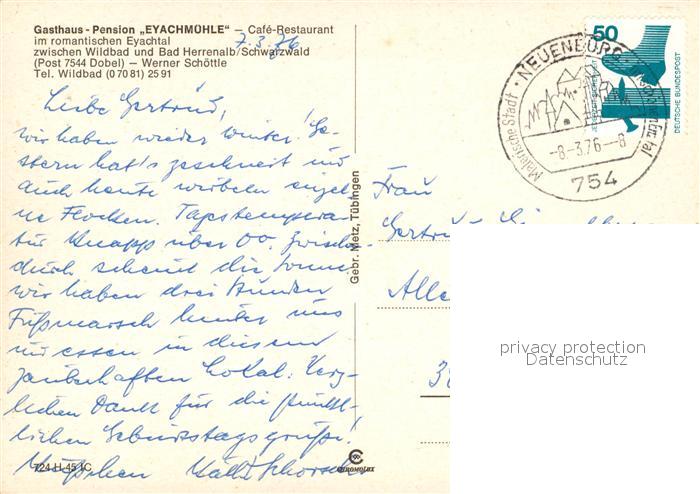 Gasthaus - Pension „EYACHMÜHLE" — Café-Restaurant
im romantischen Eyachtal
zwischen Wildbad und Bad Herrenalb/Schwarzwald
(Post 7544 Dobel) — Werner Schöttle
Tel. Wildbad (0 70 81) 25 91
7.3.76
Liebe Gertrud,
wir haben wieder Winter! Ge-
stern hat's geschneit und
auch heute wirbeln einzel-
ne Flocken. Tagestempera-
tur knapp über 0°. Zwischen-
durch scheint die Sonne,
wir haben drei Stunden
Fußmarsch hinter uns
und essen in diesem
zauberhaften Lokal. Herz-
lichen Dank für die pünkt-
lichen Geburtstagsgrüße!
724 H 45 IC
CHROMOLUX
Gebr. Metz, Tübingen
Malerische Stadt · NEUENBÜRG
-8.-3.76-—8
754
50
DEUTSCHE BUNDESPOST
Frau
privacy protection
Datenschutz